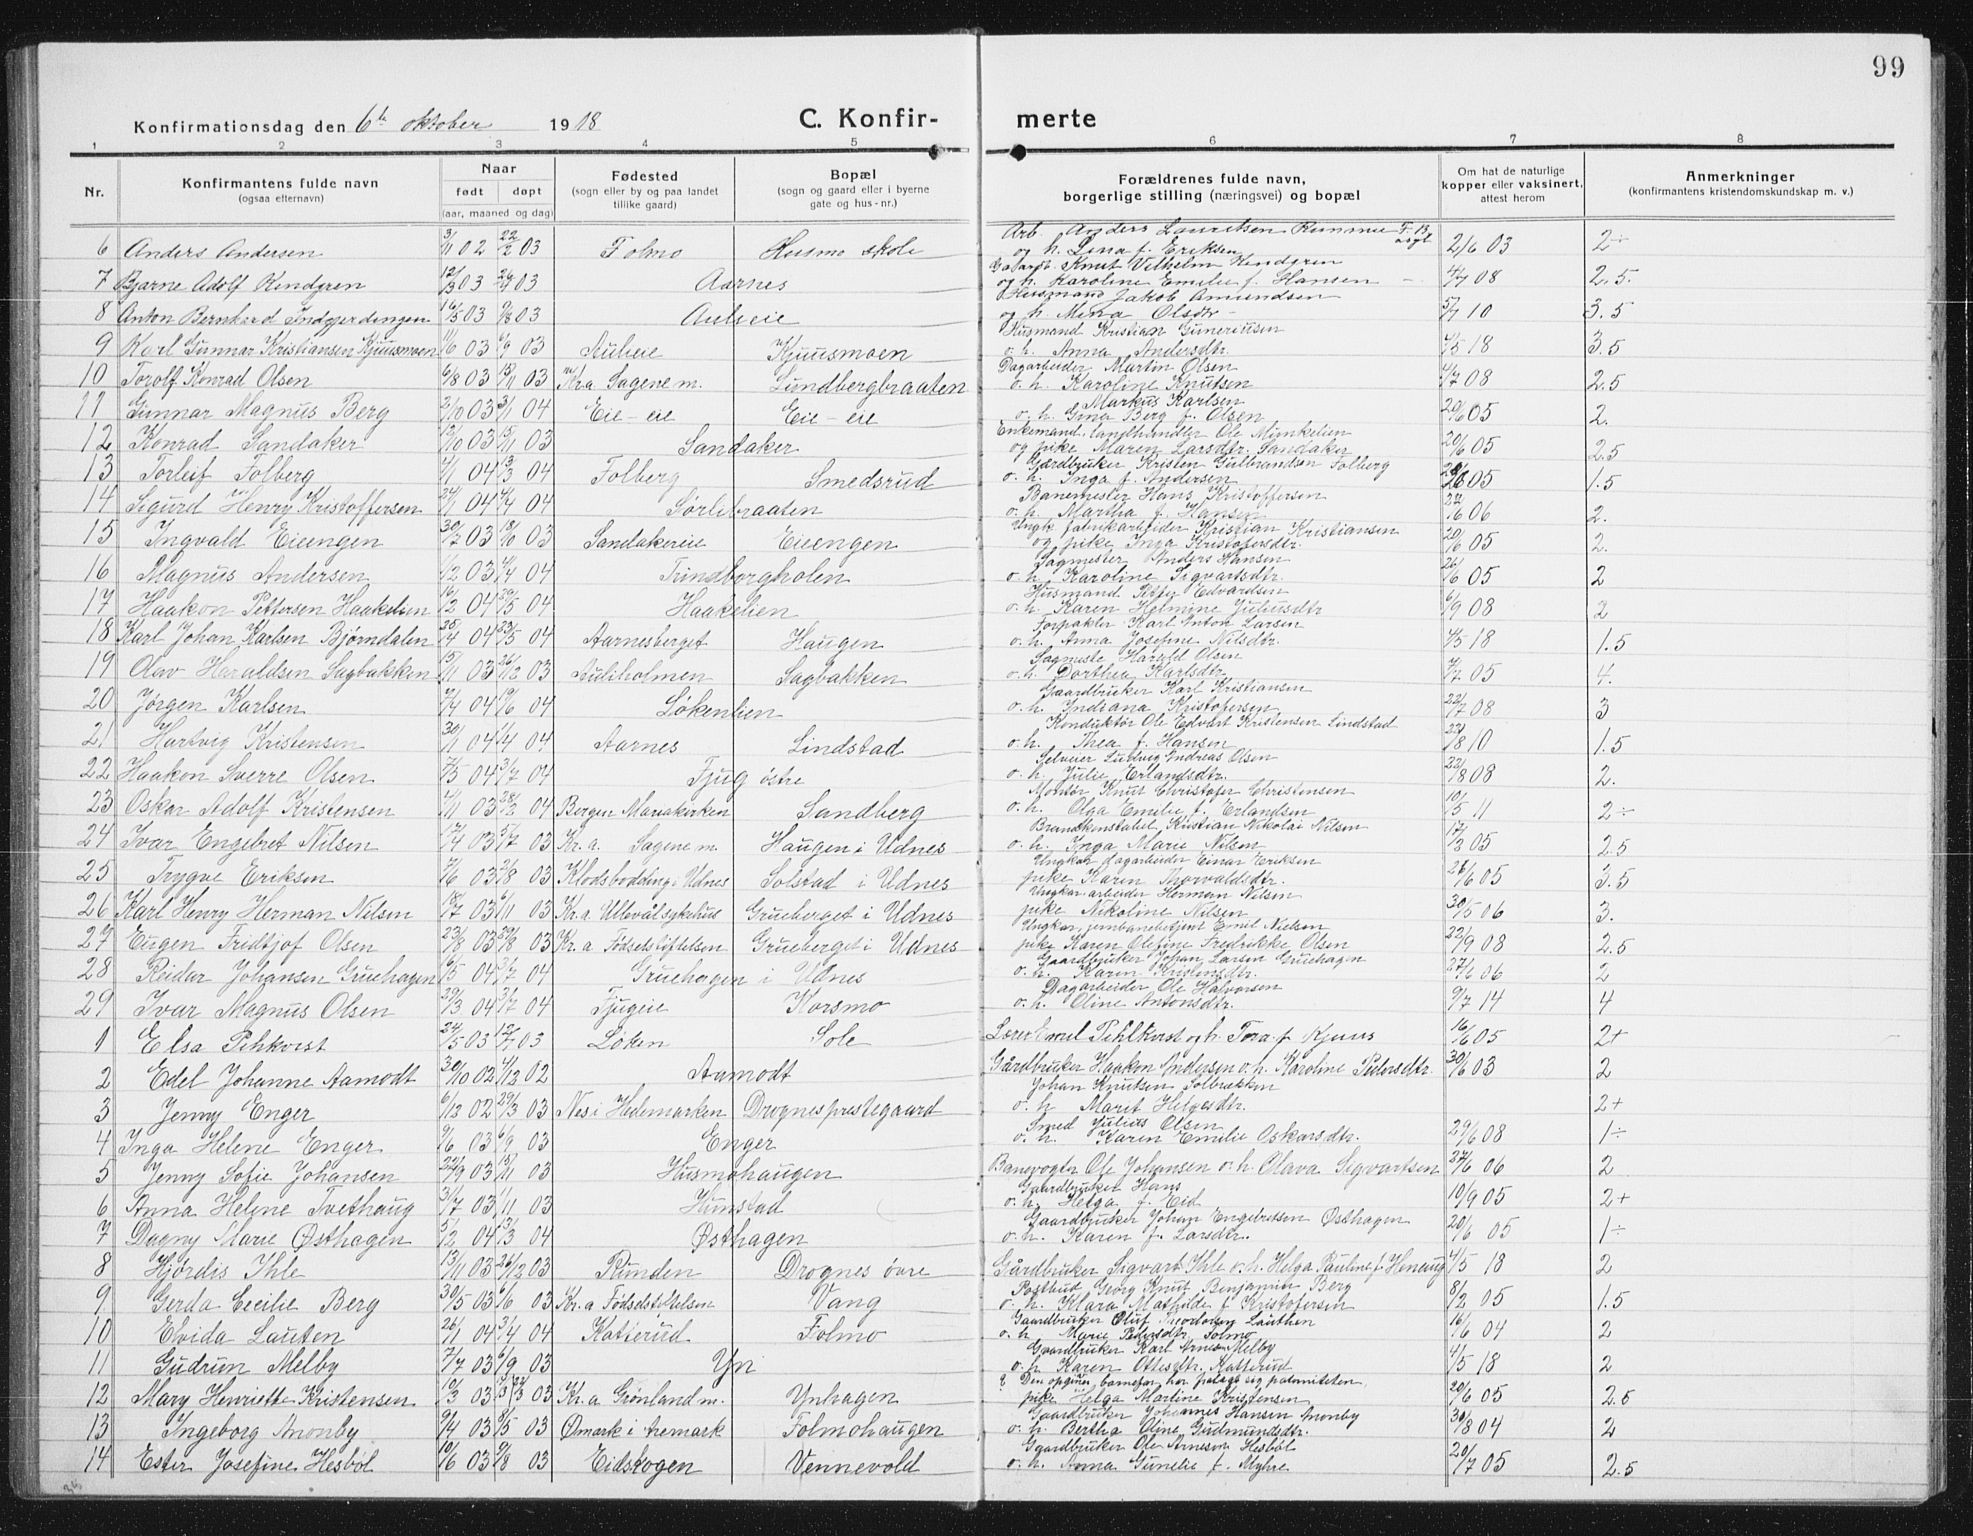 99
Konfirmationsdag den 6te oktober 1918
C. Konfirmerte
1 2 3 4 5 6 7 8
Nr. Konfirmantens fulde navn (ogsaa efternavn) Naar født døpt (aar, maaned og dag) Fødested (sogn eller by og paa landet tillike gaard) Bopæl (sogn og gaard eller i byerne gate og hus-nr.) Forældrenes fulde navn, borgerlige stilling (næringsvei) og bopæl Om hat de naturlige kopper eller vaksinert, attest herom Anmerkninger (konfirmantens kristendomskundskap m. v.)
6 Anders Andersen 3/11 02 22/2 03 Folmo Husmo skole Arb. Anders Lauritsen og h. Lina f. Eriksen 2/6 03 2÷
7 Bjarne Adolf Kendgren 12/3 03 03 Aarnes Knut Vilhelm Kendgren og h. Karoline Emilie f. Hansen 4/7 08 2.5.
8 Anton Bernhard 16/5 03 9/8 03 Aulieie Husmand Jakob Amundsen og h. Mina Olsdtr 5/7 10 3.5
9 Karl Gunnar Kristiansen Kjuusmoen 11/6 03 6/9 03 Aulieie Kjuusmoen Husmand Kristian Gunerius­sen o. h. Anna Andersdtr. 4/5 18 3.5
10 Torolf Konrad Olsen 6/8 03 15/11 03 Kr.a Sagene m. Lundbergbraaten Dagarbeider Martin Olsen o. h. Karoline Knutsen 4/7 08 2.5
11 Gunnar Magnus Berg 2/10 03 3/1 04 Eie-eie Eie-eie Markus Karlsen o. h. Gina Berg f. Olsen 20/6 05 2.
12 Konrad Sandaker 12/10 03 15/11 03 Sandaker Enkemand, landhandler Ole Mimkelien og pike Maren Larsdtr. Sandaker 20/6 05 2.5
13 Torleif Folberg 4/1 04 13/3 04 Folberg Smedsrud Gardbruker Kristen Gulbrandsen Folberg o. h. Inga f. Andersen 05 1.5
14 Sigurd Henry Kristoffersen 24/1 04 4/4 04 Sørlibraaten Banemester Hans Kristoffersen o. h. Martha f. Hansen 22/6 06 2.
15 Ingvald Eieengen 30/7 03 18/10 03 Sandakereie Eieengen Ungk. fabrikarbeider Kristian Kristiansen og pike Inga Kristofersdtr. 20/6 05 2.
16 Magnus Andersen 1/12 03 4/4 04 Trindborgholen Sagmester Anders Hansen o. h. Karoline Sigvartsdtr. 26/6 05 2
17 Haakon Pettersen Haakelien 16/2 04 29/5 04 Haakelien Husmand Petter Edvardsen o. h. Karen Helmine Juliusdtr 6/9 08 2
18 Karl Johan Karlsen Bjørndalen 25/4 04 23/5 04 Aarnesberget Haugen Forpakter Karl Anton Larsen o. h. Anna Josefine Nilsdtr. 4/5 18 1.5
19 Olav Haraldsen Sagbakken 15/11 03 26/12 03 Auliholmen Sagbakken Sagmester Harald Olsen o. h. Dorthea Karlsdtr. 7/7 05 4.
20 Jørgen Karlsen 7/4 04 19/6 04 Løkenlien Gaardbruker Karl Kristiansen o. h. Indiana Kristofersen 22/7 08 3
21 Hartvig Kristensen 30/1 04 4/4 04 Aarnes Lindstad Konduktør Ole Edvart Kristensen Lindstad o. h. Thea f. Hansen 23/8 10 1.5
22 Haakon Sverre Olsen 7/5 04 3/7 04 Fjug østre Selveier Ludvig Andreas Olsen o. h. Julie Erlandsdtr. 22/8 08 2.
23 Oskar Adolf Kristensen 11 03 28/2 04 Bergen Mariakirken Sandberg Montør Knut Christofer Christensen o. h. Olga Emilie f. Erlandsen 10/5 11 2÷
24 Ivar Engebret Nilsen 17/4 03 5/7 03 Kr.a. Sagene m. Haugen i Udnes Brandkonstabel Kristian Nikolai Nilsen o. h. Inga Marie Nilsen 17/3 05 2.5
25 Trygve Eriksen 7/6 03 2/8 03 Klodsbødding i Udnes Solstad i Udnes Ungkar dagarbeider Einar Eriksen pike Karen Thorvaldsdtr. 26/6 05 3.5
26 Karl Henry Herman Nilsen 18/7 03 6/11 03 Kr.a Ullevålsykehus Grueberget i Udnes Ungkar arbeider Herman Nilsen pike Nikoline Nilsen 30/5 06 3.
27 Eugen Fridtjof Olsen 23/8 03 30/8 03 Kr.a Fødselsstiftelsen Grueberget i Udnes Ungkar, jernbanebetjent Emil Nielsen pike Karen Olefine Fredrikke Olsen 22/9 08 2.5
28 Reidar Johansen Gruehagen 6/5 04 3/7 04 Gruehagen i Udnes Gaardbruker Johan Larsen Gruehagen o. h. Karen Kristensdtr. 27/6 06 2
29 Ivar Magnus Olsen 29/3 04 3/7 04 Fjugeie Korsmo Dagarbeider Ole Halvorsen o. h. Oline Antonsdtr. 9/7 14 4
1 Elsa Pihkvist 24/5 03 12/7 03 Løken Sole Lærer Emil Pihlkvist og h. Tora f. Kjuus 16/6 05 2+
2 Edel Johanne Aamodt 30/10 02 4/12 02 Aamodt Gårdbruker Haakon Andersen o. h. Karoline Pedersdtr. 30/6 03 2
3 Jenny Enger 6/12 02 29/3 03 Nes i Hedemarken Drognes prestegaard Johan Knutsen Solbrækken o. h Marit Helgesdtr. 2+
4 Inga Helene Enger 9/6 03 6/9 03 Enger Smed Julius Olsen o. h. Karen Emilie Oskarsdtr. 29/6 08 1÷
5 Jenny Sofie Johansen 22/9 03 15/11 03 Husmohaugen Banevogter Ole Johansen o. h. Olava Sigvartsen 27/6 06 2
6 Anna Helene Tvethaug 31/7 03 1/11 03 Hunstad Gaardbruker Hans o. h. Helga f. Eid 10/9 05 2+
7 Dagny Marie Østhagen 5/2 04 13/3 04 Østhagen Gaardbruker Johan Engebretsen Østhagen o. h. Karen f. Larsdtr. 20/6 05 1÷
8 Hjørdis Ihle 13/11 03 26/12 03 Runden Drognes øvre Gårdbruker Sigvart Ihle o. h. Helga Pauline f. Henaug 4/5 18 2
9 Gerda Cecilie Berg 30/5 03 6/6 03 Kr.a Fødselsstiftelsen Vang Postbud Georg Knut Benjamin Berg o. h. Klara Mathilde f. Kristofersen 8/2 05 1.5
10 Elvida Lauten 26/1 04 3/4 04 Katterud Folmo Gaardbruker Oluf Theodorberg Lauthen o. h Marie Pedersdtr. Folmo 16/6 04 2
11 Gudrun Melby 7/7 03 6/9 03 Yn Gaardbruker Karl Arnesen Melby o. h. Karen Ottesdtr. Katterud 4/5 18 2
12 Mary Henriette Kristensen 10/3 03 03 Kr.a Grønland m. Ynhagen Den opgivne barnefar har nektet sig paterniteten pike Helga Martine Kristensen 20/6 05 2.5
13 Ingeborg Monby 9/4 03 03 Ømark i Aremark Folmohaugen Gaardbruker Johannes Hansen Monby o. h. Bertha Oline Gudmundsdtr. 30/8 04 2
14 Ester Josefine Hesbøl 10/6 03 9/8 03 Eidskogen Vennevold Gaardbruker Ole Arnesen Hesbøl o. h. Anna Gunelie f. Myhre 20/7 05 2.5